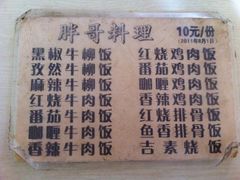 胖哥料理 10元/份
(2011年8月1)
黑椒牛柳饭 红烧鸡肉饭
孜然牛柳饭 番茄鸡肉饭
麻辣牛柳饭 咖喱鸡肉饭
红烧牛肉饭 香辣鸡肉饭
番茄牛肉饭 红烧排骨饭
咖喱牛肉饭 鱼香排骨饭
香辣牛肉饭 吉素烧饭